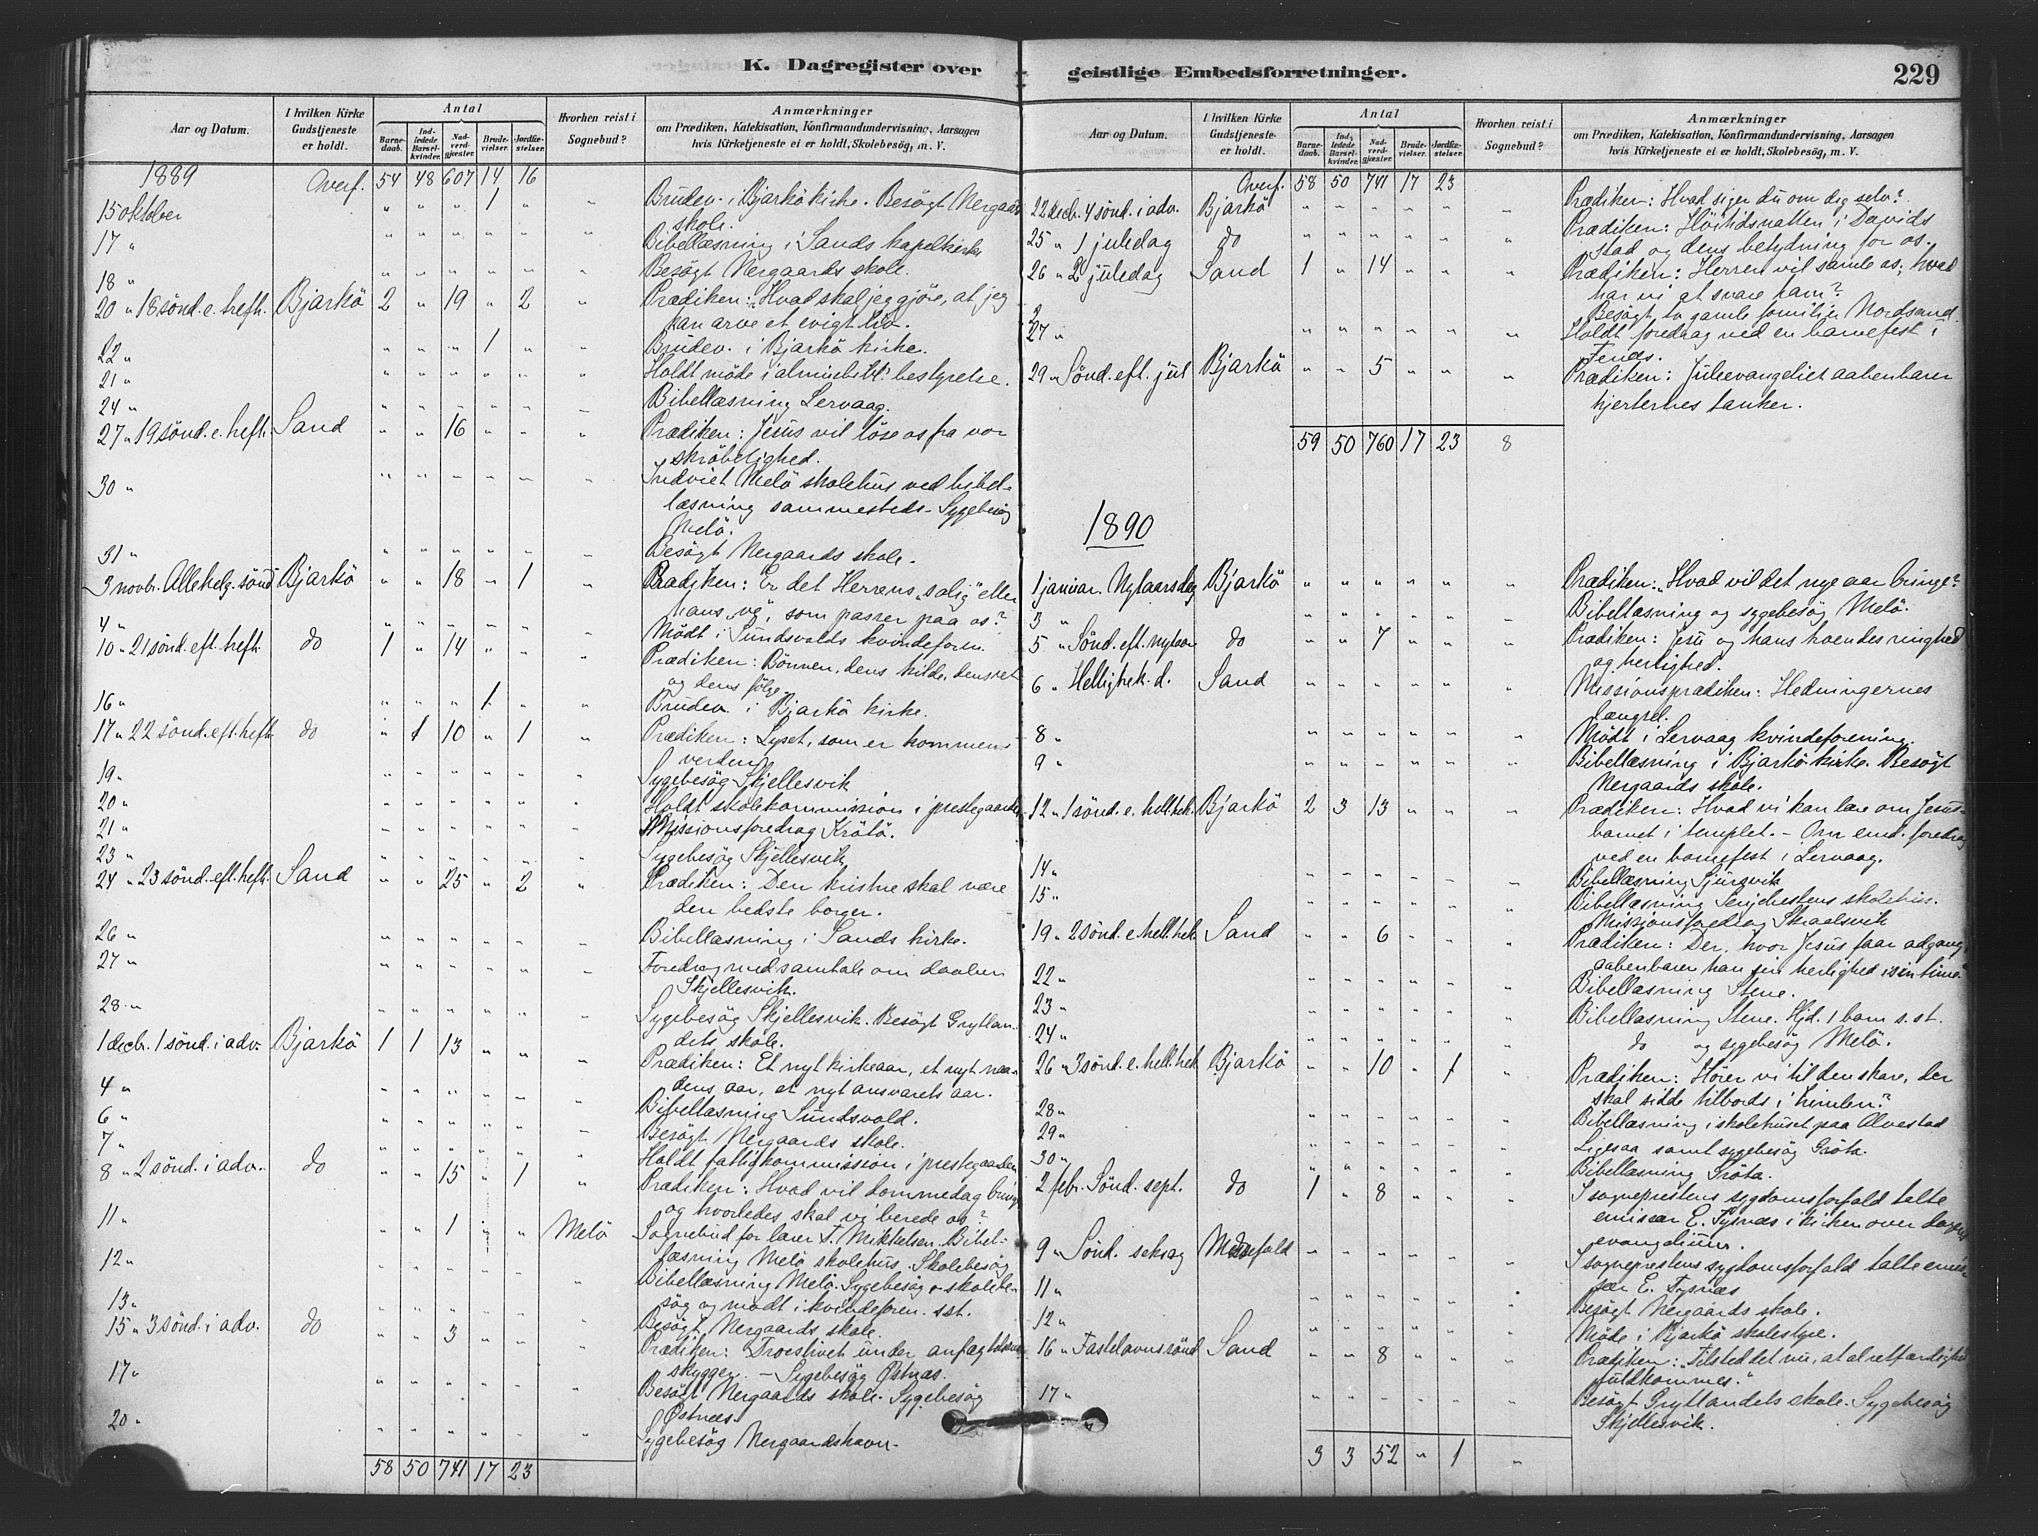 K. Dagregister over
Aar og Datum.
I hvilken Kirke Gudstjeneste er holdt.
Antal
Barnedaab.
Indledede Barselkvinder.
Nadverdgjæster.
Brudevielser.
Jordfæstelser.
Hvorhen reist i Sognebud?
Anmærkninger
om Prædiken, Katekisation, Konfirmandundervisning, Aarsagen
hvis Kirketjeneste ei er holdt, Skolebesøg, m. V.
1889 Overf. 54 48 607 14 16
15 oktober " " " 1 " " Brudev. i Bjarkö kirke. Besögt Nergaards
skole.
17 " " " " " " " Bibellæsning i Sands kapelkirke
18 " " " " " " " Besögt Nergaards skole.
20 " 18 sönd. e. trefh. Bjarkö 2 " 19 " 2 " Prædiken: "Hvad skal jeg gjöre, at jeg
kan arve et evigt liv.
22 " " " " 1 " " Brudev. i Bjarkö kirke.
21 " " " " " " " Holdt möde i almuebibl. bestyrelse.
24 " " " " " " " Bibellæsning Lervaag.
27 " 19 sönd. e. trefh. Sand " " 16 " " " Prædiken: Jesus vil löse os fra vor
skröbelighed.
30 " " " " " " " Indviet Melö skolehus ved bibel-
læsning sammesteds. Sygebesög
Melö.
31 " " " " " " " Besögt Nergaards skole.
3 novbr. Allehelg. sönd. Bjarkö " " 18 " 1 " Prædiken: Er det Herrens "salig" eller
hans "ve", som passer paa os?
4 " " " " " " " Mödt i Sundsvolds kvindeforen.
10 " 21 sönd. eft. trefh. do 1 " 14 " " " Prædiken: Bönnen, dens kilde, dens ret
og dens fölge.
16 " " " " 1 " " Brudev. i Bjarkö kirke.
17 " 22 sönd. eft. trefh. do " 1 10 " 1 " Prædiken: Lyset, som er kommen i
verden.
19 " " " " " " " Sygebesög Skjellesvik
20 " " " " " " " Holdt skolekommission i prestegaarden
21 " " " " " " " Missionsforedrag Krötö.
23 " " " " " " " Sygebesög Skjellesvik
24 " 23 sönd. eft. trefh. Sand " " 25 " 2 " Prædiken: Den kristne skal være
den bedste borger.
26 " " " " " " " Bibellæsning i Sands kirke.
27 " " " " " " " Foredrag med samtale om daaben
Skjellesvik.
28 " " " " " " " Sygebesög Skjellesvik. Besögt Gryllan-
dets skole.
1 decb. 1 sönd. i adv. Bjarkö 1 1 13 " " " Prædiken: Et nyt kirkeaar, et nyt naa-
dens aar, et nyt ansvarets aar.
4 " " " " " " " Bibellæsning Sundsvold.
6 " " " " " " " Besögt Nergaards skole.
7 " " " " " " " Holdt fattigkommission i prestegaarden
8 " 2 sönd. i adv. do " " 15 " 1 " Prædiken: Hvad vil dommedag bringe
og hvorledes skal vi berede os?
11 " " " 1 " " Melö Sognebud for lærer T. Mikkelsen. Bibel-
læsning Melö skolehus. Skolebesög
12 " " " " " " " Bibellæsning Melö. Sygebesög o skolebe-
sög og mödt i kvindeforen. sst.
13 " " " " " " " Besögt Nergaards skole.
15 " 3 sönd. i adv. do " " 3 " " " Prædiken: Troeslivet under anfægtelsens
skygger. - Sygebesög Östnæs.
17 " " " " " " " Besögt Nergaards skole. Sygebesög
Östnæs
20 " " " " " " " Sygebesög Nergaardshavn.
58 50 741 17 23
geistlige Embedsforretninger. 229
Aar og Datum.
I hvilken Kirke Gudstjeneste er holdt.
Antal
Barnedaab.
Indledede Barselkvinder.
Nadverdgjæster.
Brudevielser.
Jordfæstelser.
Hvorhen reist i Sognebud?
Anmærkninger
om Prædiken, Katekisation, Konfirmandundervisning, Aarsagen
hvis Kirketjeneste ei er holdt, Skolebesøg, m. V.
Overf. 58 50 741 17 23
22 decb. 4 sönd. i adv. Bjarkö " " " " " " Prædiken: Hvad siger du om dig selv?
25 " 1 juledag do " " " " " " Prædiken: Höitidsnatten i Davids
stad og dens betydning for os.
26 " 2 juledag Sand 1 " 14 " " " Prædiken: Herren vil samle os; hvad
har vi at svare ham?
Besögt to gamle familier Nordsand.
27 " " " " " " " Holdt foredrag ved en barnefest i
Fenes.
29 " Sönd. eft. jul Bjarkö " " 5 " " " Prædiken: Juleevangeliet aabenbarer
hjerternes tanker.
59 50 760 17 23 8
1890
1 januar. Nytaarsdag Bjarkö " " " " " " Prædiken: "Hvad vil det nye aar bringe?
3 " " " " " " Bibellæsning og sygebesög Melö.
5 " Sönd. eft. nytaar do " " 7 " " " Prædiken: Jesu og hans troendes ringhed
og herlighed.
6 " Hellig trek. d. Sand " " " " " " Missionsprædiken: Hedningernes
længsel.
8 " " " " " " " Mödt i Lervaag kvindeforening.
9 " " " " " " " Bibellæsning i Bjarkö kirke. Besögt
Nergaards skole.
12 " 1 sönd. e. hell. trek. Bjarkö 2 3 13 " " " Prædiken: Hvad vi kan lære om Jesus-
barnet i templet. - Om emd. foredrag
ved en barnefest i Lervaag.
14 " " " " " " " Bibellæsning
15 " " " " " " " Bibellæsning skolehus.
Missionsforedrag
19 " 2 sönd. e. hell. trek. Sand " " 6 " " " Prædiken: Der, hvor Jesus faar adgang,
aabenbarer han sin herlighed i sin time
22 " " " " " " " Bibellæsning Stene.
23 " " " " " " " Bibellæsning Stene. Hjd. 1 barn s. st.
24 " " " " " " " do og sygebesög Melö.
26 " 3 sönd. e. hell. trek. Bjarkö " " 10 " 1 " Prædiken: Hörer vi til den skare, der
skal sidde tilbords i himlen?
28 " " " " " " " Bibellæsning i skolehuset paa Alvestad
29 " " " " " " " Ligesaa samt sygebesög Gröta.
30 " " " " " " " Bibellæsning Kröta.
2 febr. Sönd. sept. do 1 " 8 " " " I sogneprestens sygdomsforfald talte
emissær E. Tysnæs i kirken over dagens
evangelium.
9 " Sönd. seksag. Messefald " " " " " " I sogneprestens sygdomsforfald talte emis-
sær E. Tysnæs
11 " " " " " " " Besögt Nergaards skole.
12 " " " " " " " Möde i Bjarkö skolestyre.
16 " Fastelavnssönd Sand " " 8 " " " Prædiken: Tilsted det nu, at al retfærdighed
fuldkommes."
17 " " " " " " " Besögt Gryllandets skole. Sygebesög
Skjellesvik.
3 3 52 " 1 "